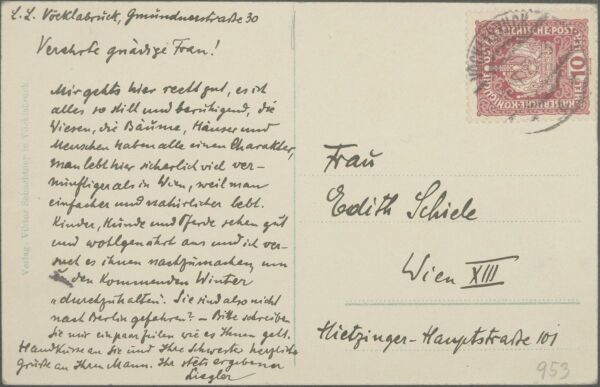 z. Z. Vöcklabruck, Gmundnerstraße 30
Verehrte gnädige Frau!
Mir gehts hier recht gut, es ist
alles so still und beruhigend, die
Wiesen, die Bäume, Häuser und
Menschen haben alle einen Charakter,
man lebt hier sicherlich viel ver-
nünftiger als in Wien, weil man
einfacher und natürlicher lebt.
Kinder, Hunde und Pferde sehen gut
und wohlgenährt aus und ich ver-
such es ihnen nachzumachen, um
den kommenden Winter
„durchzuhalten". Sie sind also nicht
nach Berlin gefahren? – Bitte schreiben
Sie mir ein paar Zeilen wie es Ihnen geht.
Handküsse an Sie und Ihre Schwester herzliche
Grüße an Ihren Mann. Ihr stets ergebener
Liegler
Verlag: Viktor Schachtner in Vöcklabruck
KAISERLICHE KÖNIGLICHE ÖSTERREICHISCHE POST
10
Frau
Edith Schiele
Wien XIII
Hietzinger-Hauptstraße 101
953